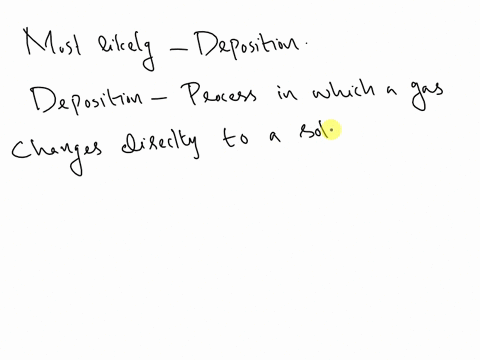 Most likely – Deposition.
Deposition – Process in which a gas
changes direclty to a sol